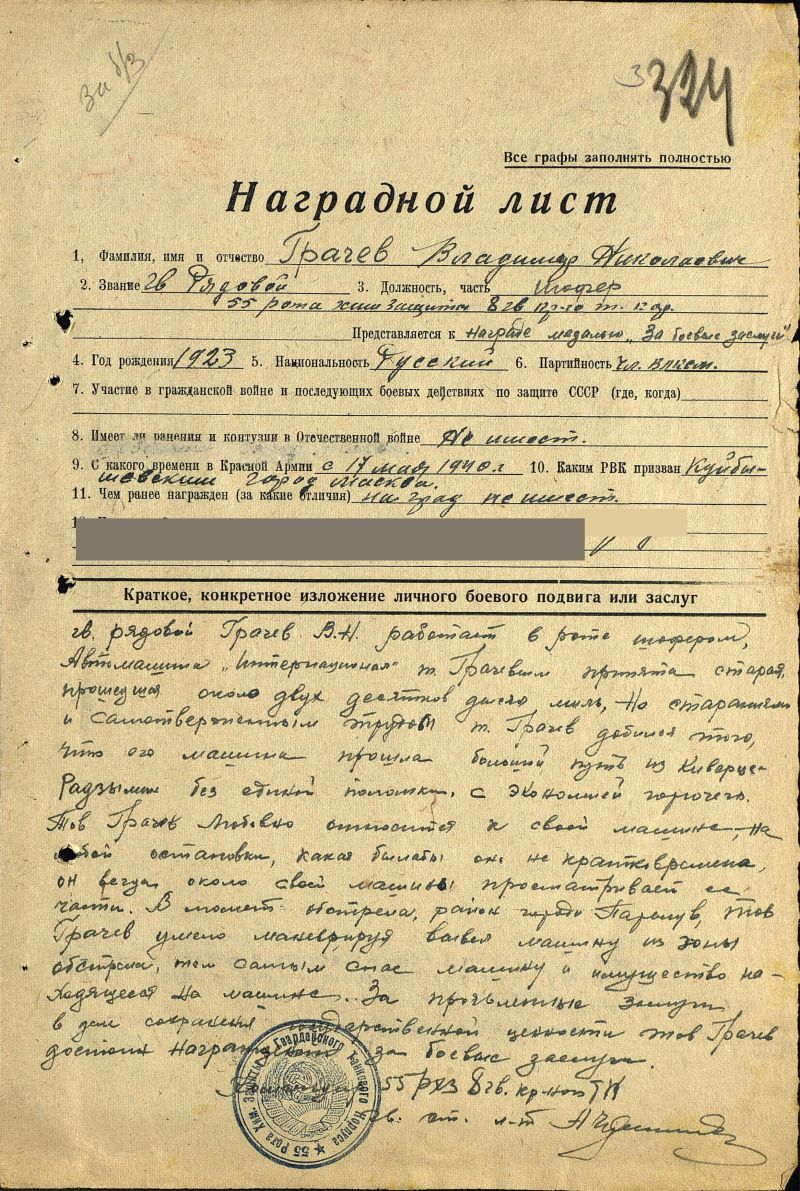 За б/з
3 324
Все графы заполнять полностью
Наградной лист
1, Фамилия, имя и отчество Грачев Владимир Николаевич
2. Звание гв Рядовой 3. Должность, часть шофер
55 рота хим защиты 8 гв кр-го т. кор.
Представляется к награде медалью „За боевые заслуги"
4. Год рождения 1923 5. Национальность Русский 6. Партийность чл. влксм.
7. Участие в гражданской войне и последующих боевых действиях по защите СССР (где, когда)
8. Имеет ли ранения и контузии в Отечественной войне Не имеет.
9. С какого времени в Красной Армии с 17 мая 1940 г 10. Каким РВК призван Куйбы-
шевским город Масква.
11. Чем ранее награжден (за какие отличия) наград не имеет.
Краткое, конкретное изложение личного боевого подвига или заслуг
гв. рядовой Грачев В.Н. работает в роте шофером,
Автомашина „Интернационал" т. Грачевым принята старая,
прошедшая около двух десятков тысяч миль, Но старанием
и самотверженным трудом т. Грачев добился того,
что его машина прошла большой путь из Киверце-
Радзымин без единой поломки, с экономией горючего.
Тов Грачев Любовно относится к своей машине, на
любой остановки, какая былабы она не кратковремена,
он всегда около своей машины просматривает ее
части. В момент обстрела, район города Парчув, тов
Грачев умело маневрируя вывел машину из зоны
обстрела, тем самым спас машину и имущество на-
ходящееся на машине. За заслуги
в деле сохранения государственной ценности тов Грачев
достоин награждения за боевые заслуги.
Командир 55 РХЗ 8 гв. кр-ной ТК
гв. ст. л-т
55 Рота Хим. Защиты 8 Гвардейского Танкового Корпуса